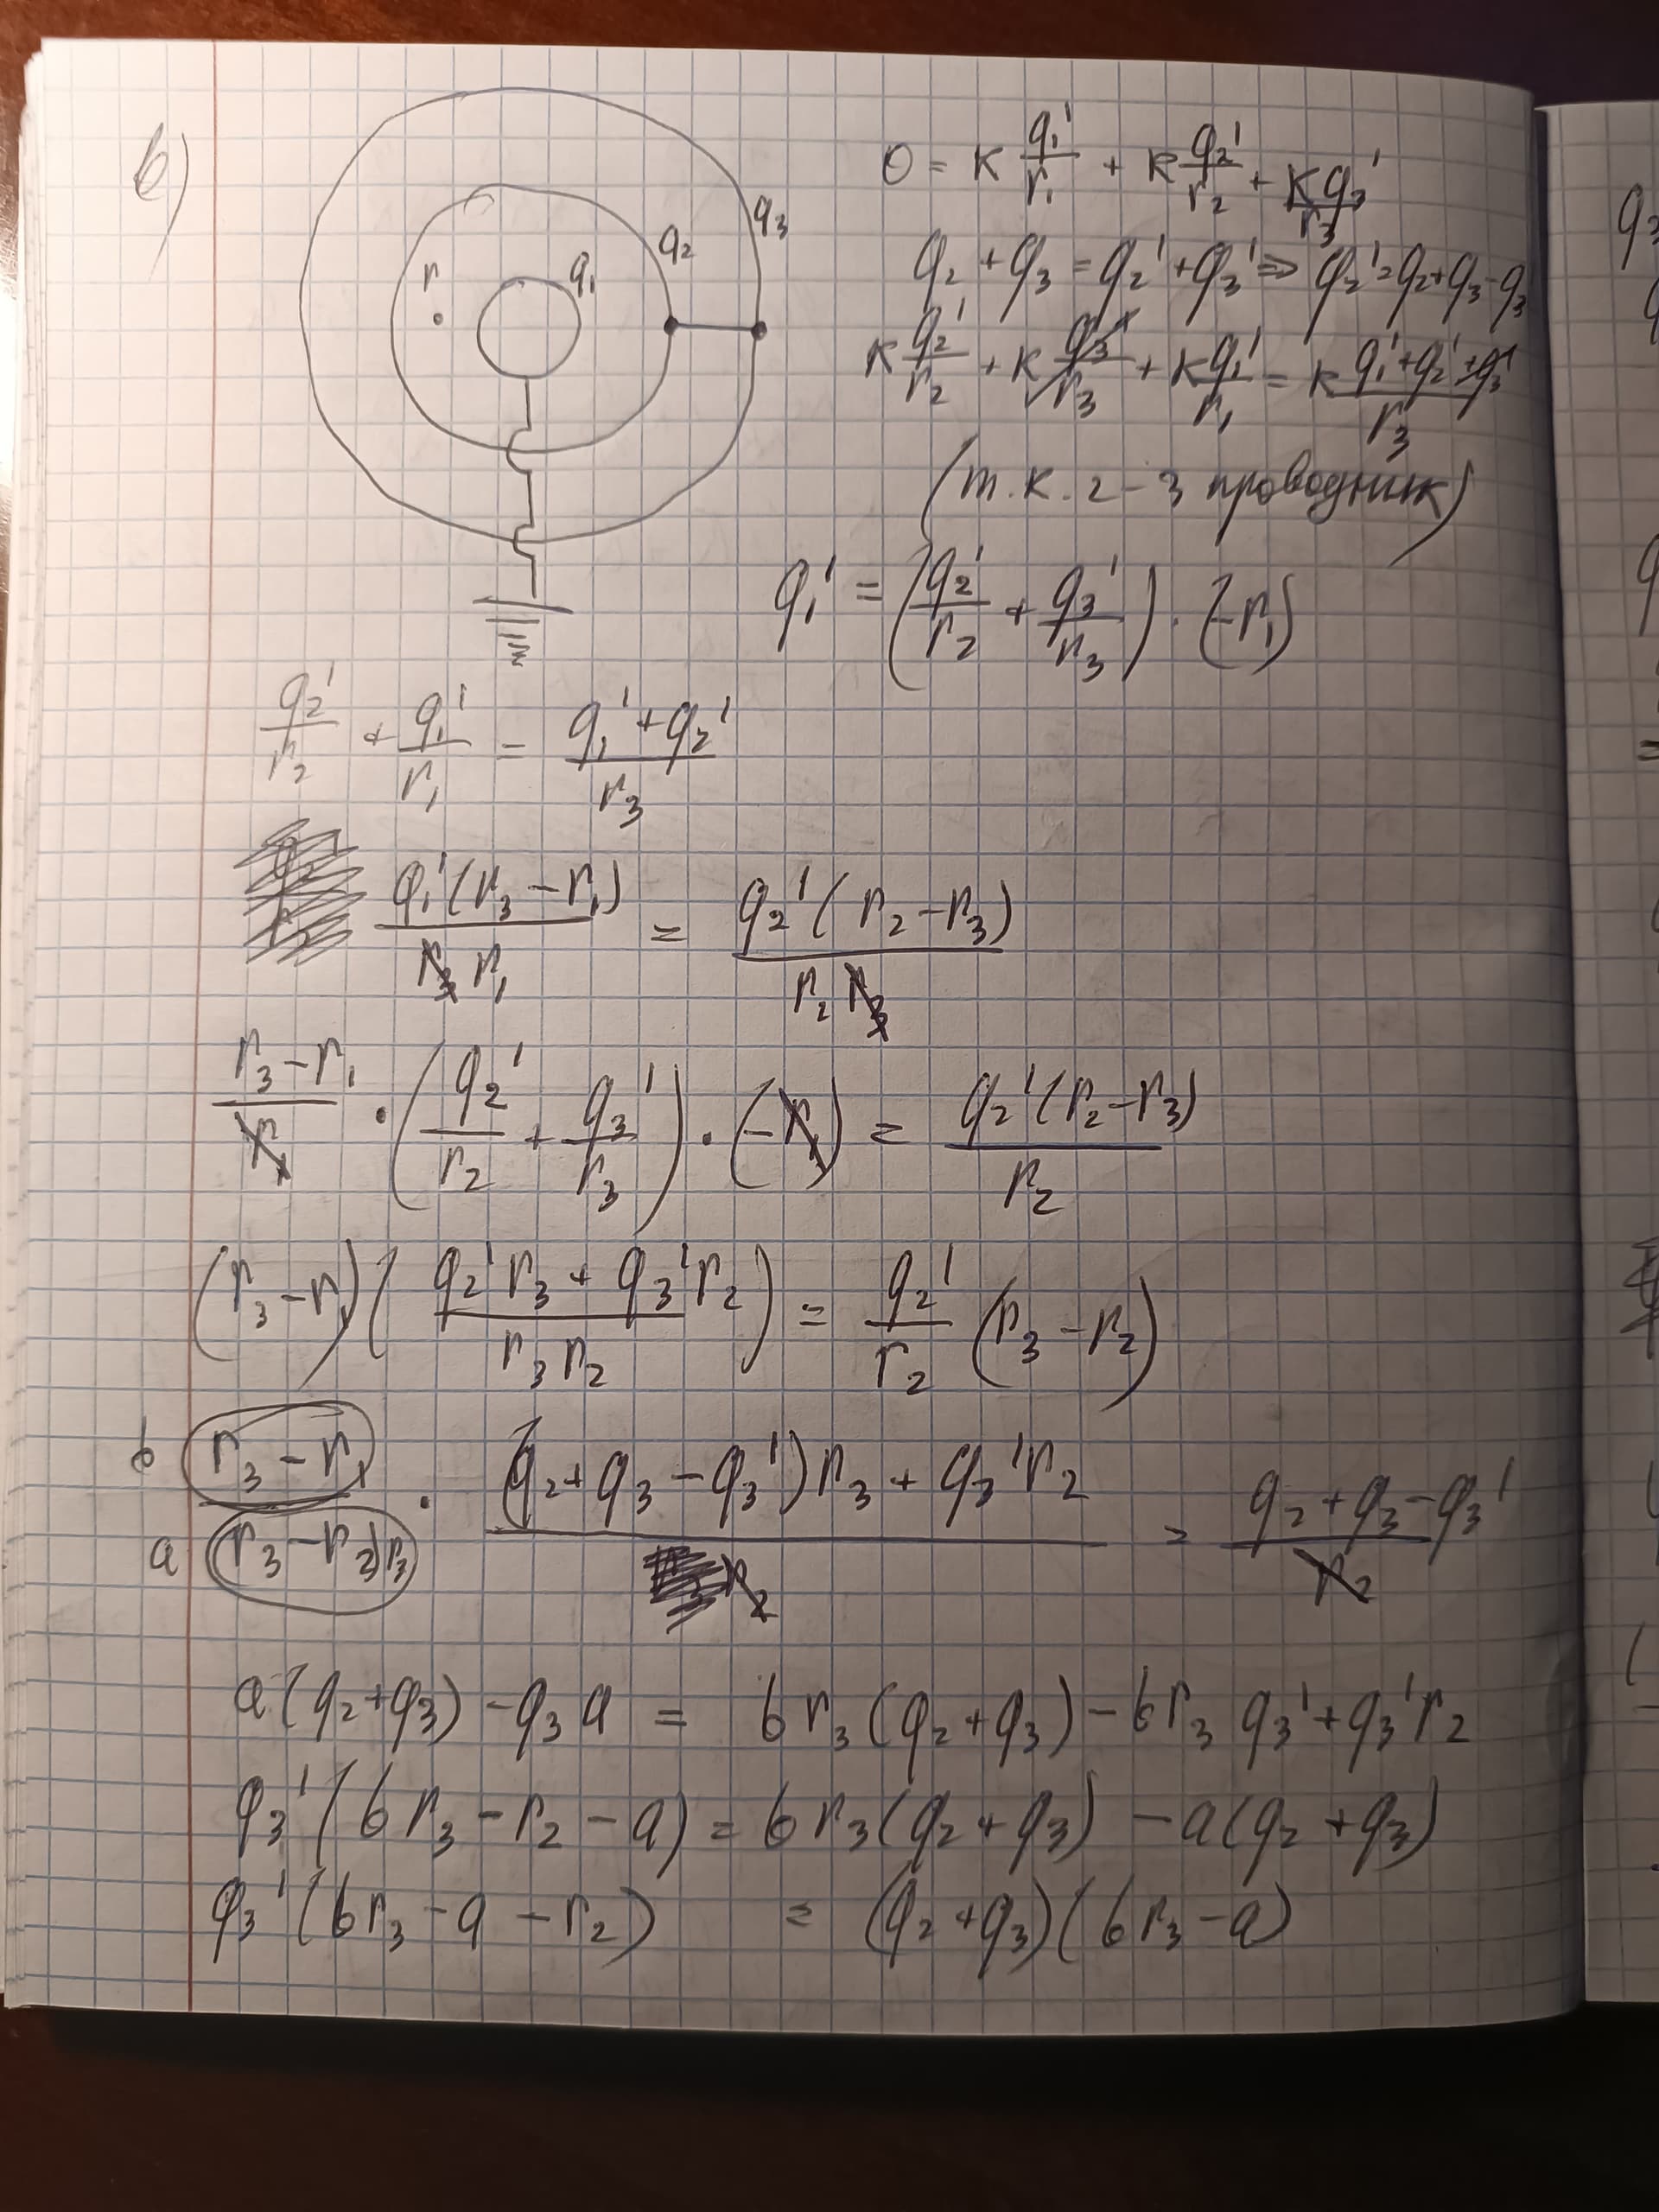 б)
r q₁ q₂ q₃
0 = k q₁'/r₁ + k q₂'/r₂ + kq₃'/r₃
q₂ + q₃ = q₂' + q₃' ⇒ q₂' = q₂ + q₃ - q₃
k q₂'/r₂ + k q₃'/r₃ + k q₁'/r₁ = k (q₁' + q₂' + q₃')/r₃
(т.к. 2-3 проводник)
q₁' = (q₂'/r₂ + q₃'/r₃) · (-r₁)
q₂'/r₂ + q₁'/r₁ = (q₁' + q₂')/r₃
q₁'(r₃ - r₁)/(r₃ r₁) = q₂'(r₂ - r₃)/(r₂ r₃)
(r₃ - r₁)/r₁ · (q₂'/r₂ + q₃'/r₃) · (-r₁) = q₂'(r₂ - r₃)/r₂
(r₃ - r₁)((q₂'r₃ + q₃'r₂)/(r₃ r₂)) = q₂'/r₂ (r₃ - r₂)
b (r₃ - r₁)/a (r₃ - r₂)r₃ · ((q₂ + q₃ - q₃')r₃ + q₃'r₂)/r₂ = (q₂ + q₃ - q₃')/r₂
a(q₂ + q₃) - q₃a = br₃(q₂ + q₃) - br₃ q₃' + q₃'r₂
q₃'(br₃ - r₂ - a) = br₃(q₂ + q₃) - a(q₂ + q₃)
q₃'(br₃ - a - r₂) = (q₂ + q₃)(br₃ - a)